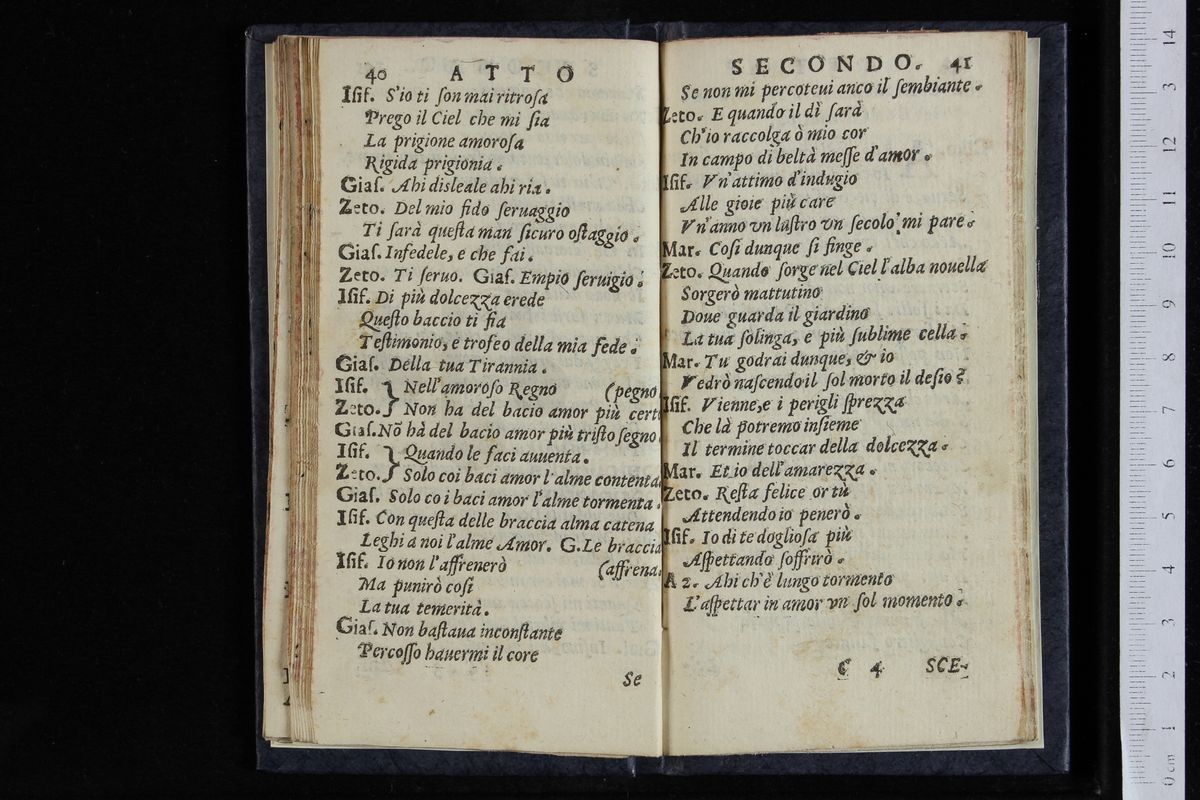 40 ATTO
Isif. S'io ti son mai ritrosa
Prego il Ciel che mi sia
La prigione amorosa
Rigida prigionia.
Gias. Ahi disleale ahi ria.
Zeto. Del mio fido seruaggio
Ti sarà questa man sicuro ostaggio.
Gias. Infedele, e che fai.
Zeto. Ti seruo. Gias. Empio seruigio.
Isif. Di più dolcezza erede
Questo baccio ti fia
Testimonio, e trofeo della mia fede.
Gias. Della tua Tirannia.
Isif. } Nell'amoroso Regno (pegno
Zeto. } Non ha del bacio amor più cert
Gias. Nõ hà del bacio amor più tristo segno.
Isif. } Quando le faci auuenta.
Zeto. } Solo coi baci amor l'alme contenta.
Gias. Solo coi baci amor l'alme tormenta.
Isif. Con questa delle braccia alma catena
Leghi a noi l'alme Amor. G. Le braccia
Isif. Io non l'affrenerò (affrena.
Ma punirò così
La tua temerità.
Gias. Non bastaua inconstante
Percosso hauermi il core
Se
SECONDO. 41
Se non mi percoteui anco il sembiante.
Zeto. E quando il dì sarà
Ch'io raccolga ò mio cor
In campo di beltà messe d'amor.
Isif. Vn'attimo d'indugio
Alle gioie più care
Vn'anno vn lustro vn secolo mi pare.
Mar. Così dunque si finge.
Zeto. Quando sorge nel Ciel l'alba nouella
Sorgerò mattutino
Doue guarda il giardino
La tua solinga, e più sublime cella.
Mar. Tu godrai dunque, & io
Vedrò nascendo il sol morto il desio?
Isif. Vienne, e i perigli sprezza
Che là potremo insieme
Il termine toccar della dolcezza.
Mar. Et io dell'amarezza.
Zeto. Resta felice or tù
Attendendo io penerò.
Isif. Io di te dogliosa più
Aspettando soffrirò.
A 2. Ahi ch'è lungo tormento
L'aspettar in amor vn sol momento.
C 4 SCE-
14
13
12
11
10
9
8
7
6
5
4
3
2
1
0 cm